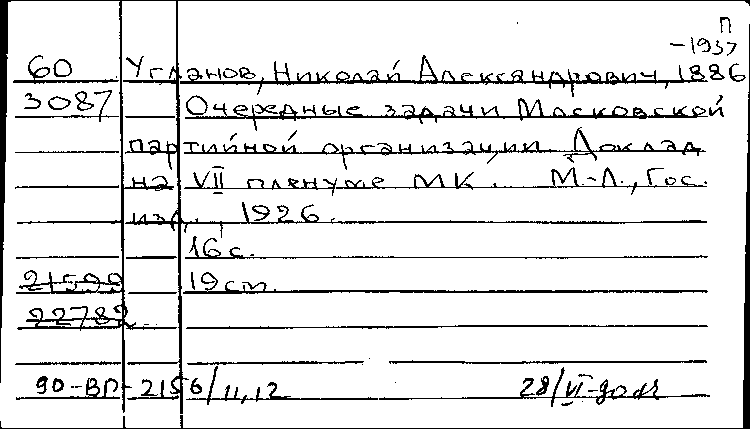 П
-1937
60 Угланов, Николай Александрович, 1886
3087 Очередные задачи Московской
партийной организации. Доклад
на VII пленуме МК. М.-Л., Гос.
изд., 1926.
16 с.
21599 19 см.
22782
90-ВП-2156/11,12 28/VI-90